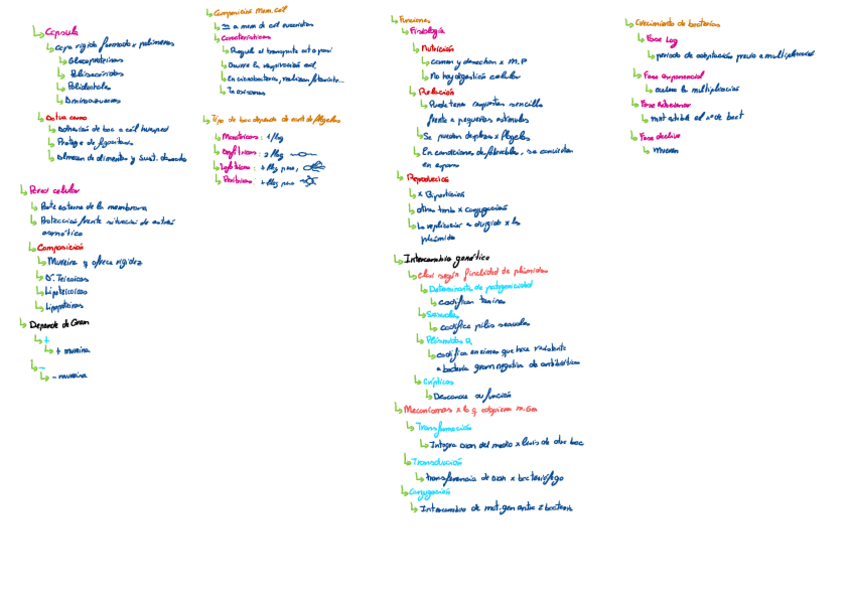 Cápsula
Capa rígida formada x polímeros
Glucoproteínas
Polisacáridos
Polialcoholes
Aminoazúcares
Actua como
Adhesión de bac a cél huesped
Protege de fagocitosis
Almacén de alimentos y sust. desecho
Pared celular
Parte externa de la membrana
Protección frente situación de estrés
osmótico
Composición
Mureína y ofrece rigidez
Ác. Teicoicos
Lipoteicoicos
Lipoproteínas
Depende de Gram
+
+ mureína
-
- mureína
Composición Mem. cél
≃ a mem de cél eucariotas
Características
Regula el transporte
Ocurre la respiración cél.
En cianobacterias, realizan fotosínt...
Tipo de bac depende de cant de flagelos
Monótricos: 1 flag
Lofótricos:
Perítricos:
Funciones
Fisiología
Nutrición
comen y desechan x M.P
No hay digestión celular
Relación
Puede tener respuestas sencillas
frente a pequeños estímulos
Se pueden desplazar x flagelos
En condiciones desfavorables, se convierten
en esporas
Reproducción
x Bipartición
otras tantas x conjugación
La replicación es dirigida x los
plásmidos
Intercambio genético
Clas según finalidad de plásmidos
Determinante de patogenicidad
codifican toxinas
Sexuales
codifica pilis sexuales
Plásmidos R
codifica enzimas que hace resistente
a bacteria gram negativa de antibióticos
Crípticos
Desconoce su función
Mecanismos x b.g. adquieren m.Gen
Transformación
Integra ADN del medio x lisis de otra bac
Transducción
transferencia de ADN x bacteriófago
Conjugación
Intercambio de mat. gen entre 2 bacterias
Crecimiento de bacterias
Fase Log
periodo de adaptación previo a multiplicarse
Fase exponencial
acelera la multiplicación
Fase estacionaria
mant estable el nº de bact
Fase declive
mueren